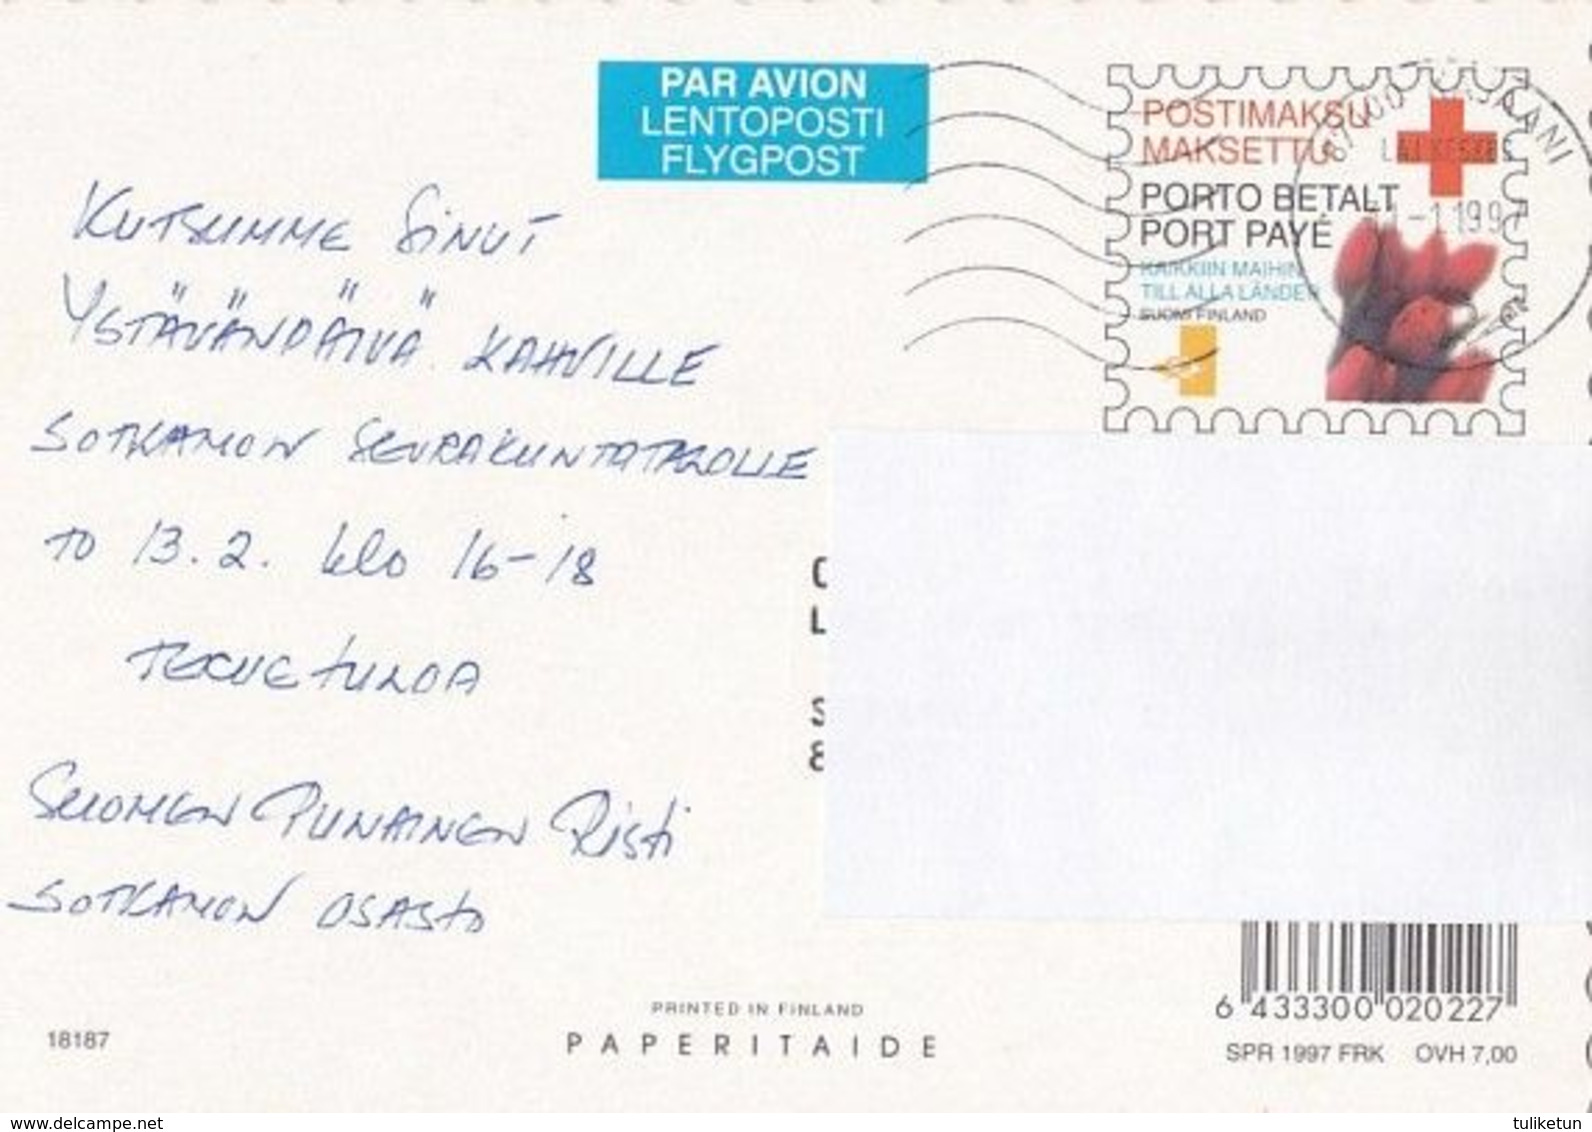 PAR AVION
LENTOPOSTI
FLYGPOST
POSTIMAKSU
MAKSETTU
PORTO BETALT
PORT PAYÉ
KAIKKIIN MAIHIN
TILL ALLA LÄNDER
SUOMI FINLAND
KUTSUMME SINUT
YSTÄVÄNPÄIVÄ KAHVILLE
SOTKAMON SEURAKUNTATALOLLE
TO 13.2. klo 16-18
TERVETULOA
SUOMEN PUNAINEN RISTI
SOTKAMON OSASTO
PRINTED IN FINLAND
PAPERITAIDE
18187
6 433300 020227
SPR 1997 FRK OVH 7,00
www.delcampe.net
tuliketun